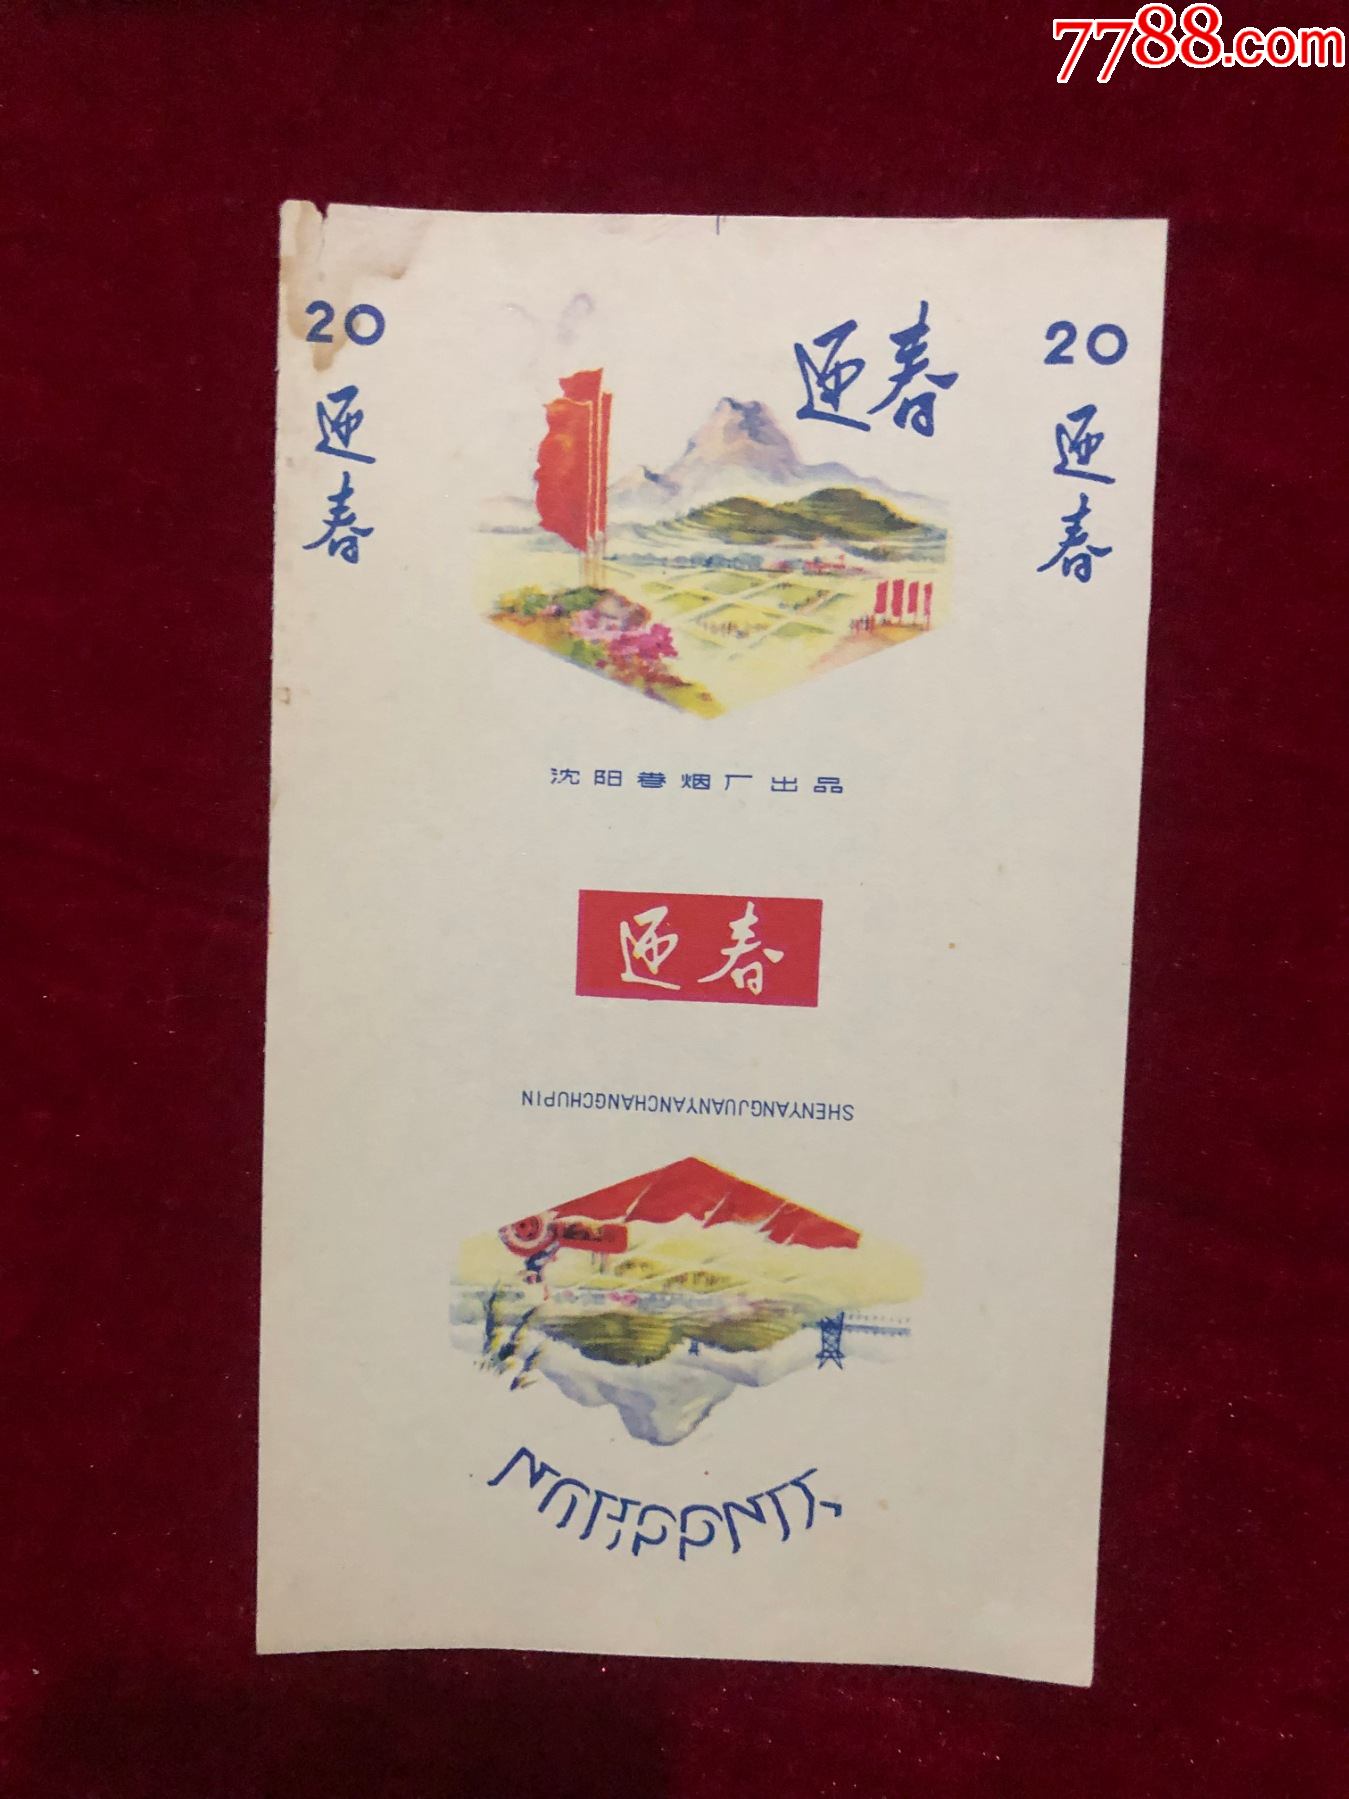 7788.com
20
迎春
迎春
20
迎春
沈阳卷烟厂出品
迎春
SHENYANGJUANYANCHANGCHUPIN
YINGCHUN